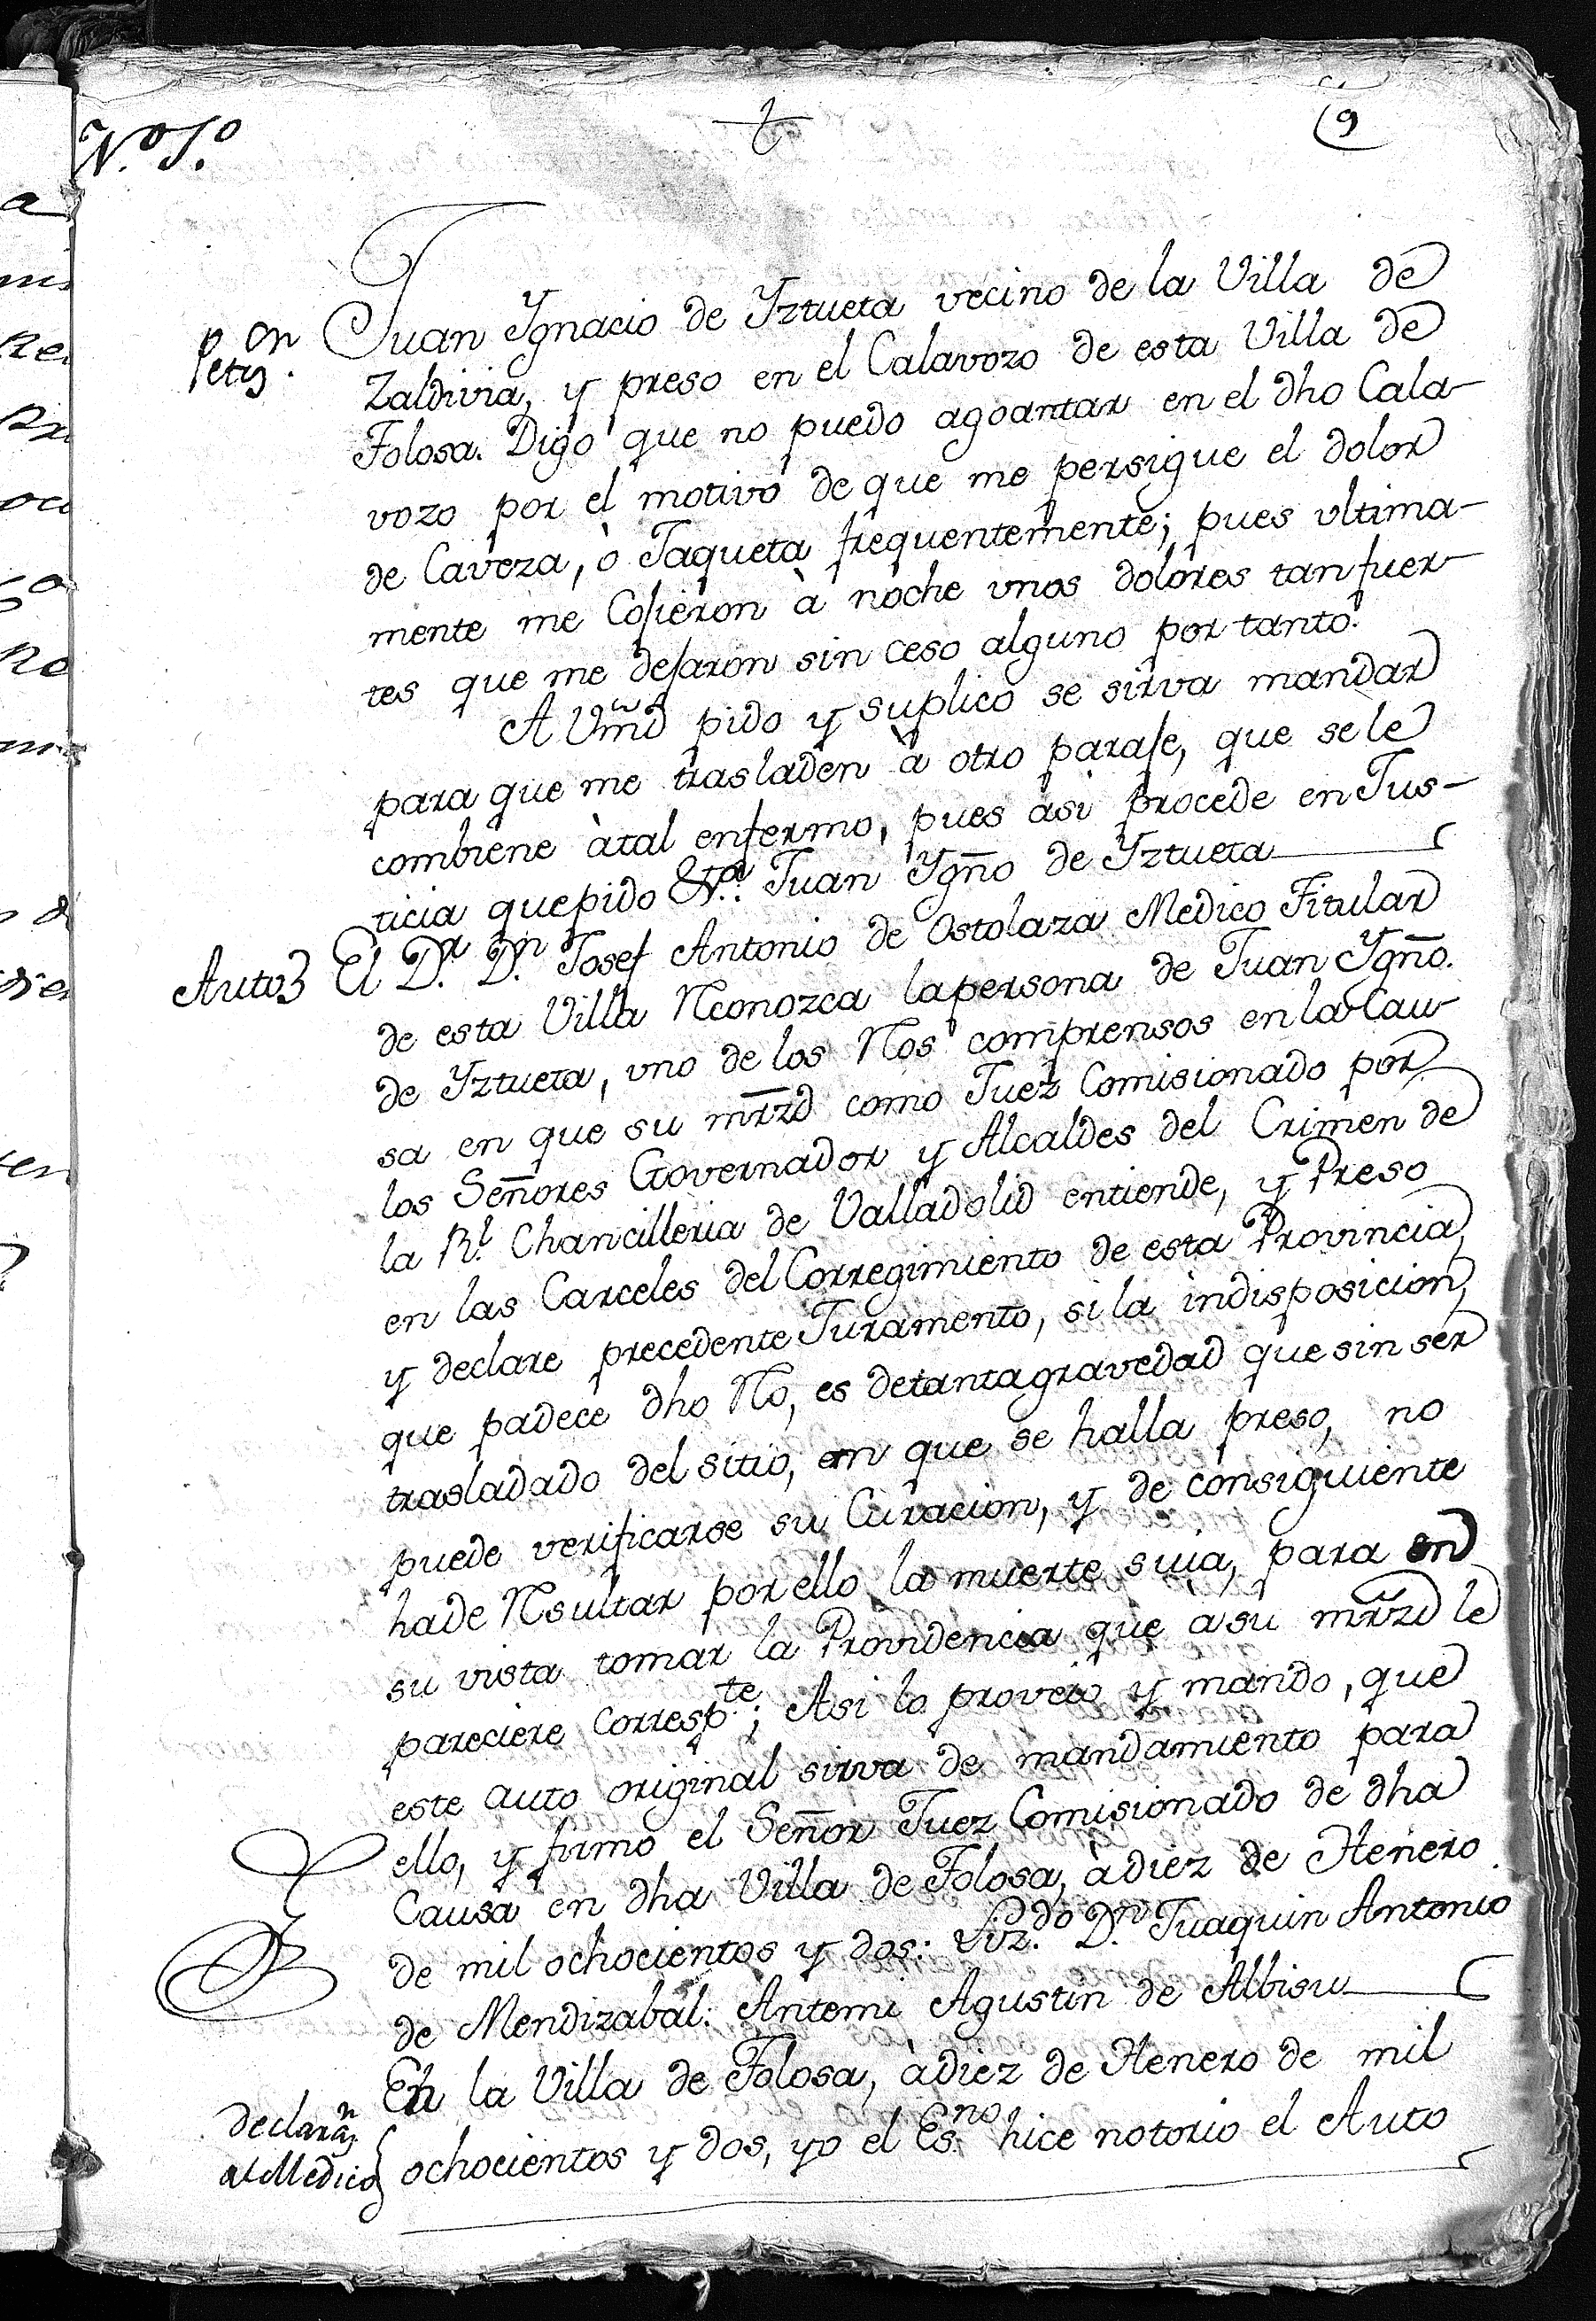 N.º 1.º
9
Juan Ygnacio de Yztueta vecino de la Villa de
Petiz.on
Zaldivia, y preso en el Calavozo de esta Villa de
Tolosa. Digo que no puedo agoantar en el dho Cala-
vozo por el motivo de que me persigue el dolor
de Caveza, ò Jaqueta frequentemente; pues ultima-
mente me Cojieron à noche unos dolores tan fuer-
tes que me dejaron sin ceso alguno por tanto.
A Vmd pido y suplico se sirva mandar
para que me trasladen à otro paraje, que se le
combiene à tal enfermo, pues àsi procede en Jus-
ticia que pido &ra. Juan Ygño de Yztueta
Auto} El D.r D.n Josef Antonio de Ostolaza Medico Titular
de esta Villa Rconozca la persona de Juan Ygño.
de Yztueta, uno de los Ros comprensos en la Cau-
sa en que su mrzd como Juez Comisionado por
los Señores Governador y Alcaldes del Crimen de
la Rl. Chancilleria de Valladolid entiende, y Preso
en las Carceles del Corregimiento de esta Provincia,
y declare precedente Juramento, si la indisposicion,
que padece dho Ro, es de tanta gravedad que sin ser
trasladado del sitio, en que se halla preso, no
puede verificarse su Curacion, y de consiguiente
ha de Rsultar por ello la muerte suia, para en
su vista tomar la Providencia que a su mrzd le
pareciere Corresp.te; Asi lo proveio y mando, que
este auto original sirva de mandamiento para
ello, y firmo el Señor Juez Comisionado de dha
Causa en dha Villa de Tolosa, à diez de Henero
de mil ochocientos y dos: Lizdo. D.n Juaquin Antonio
de Mendizabal: Antemi Agustin de Albisu
En la Villa de Tolosa, à diez de Henero de mil
declaraz.n
al Medico} ochocientos y dos, yo el Es.no hice notorio el Auto